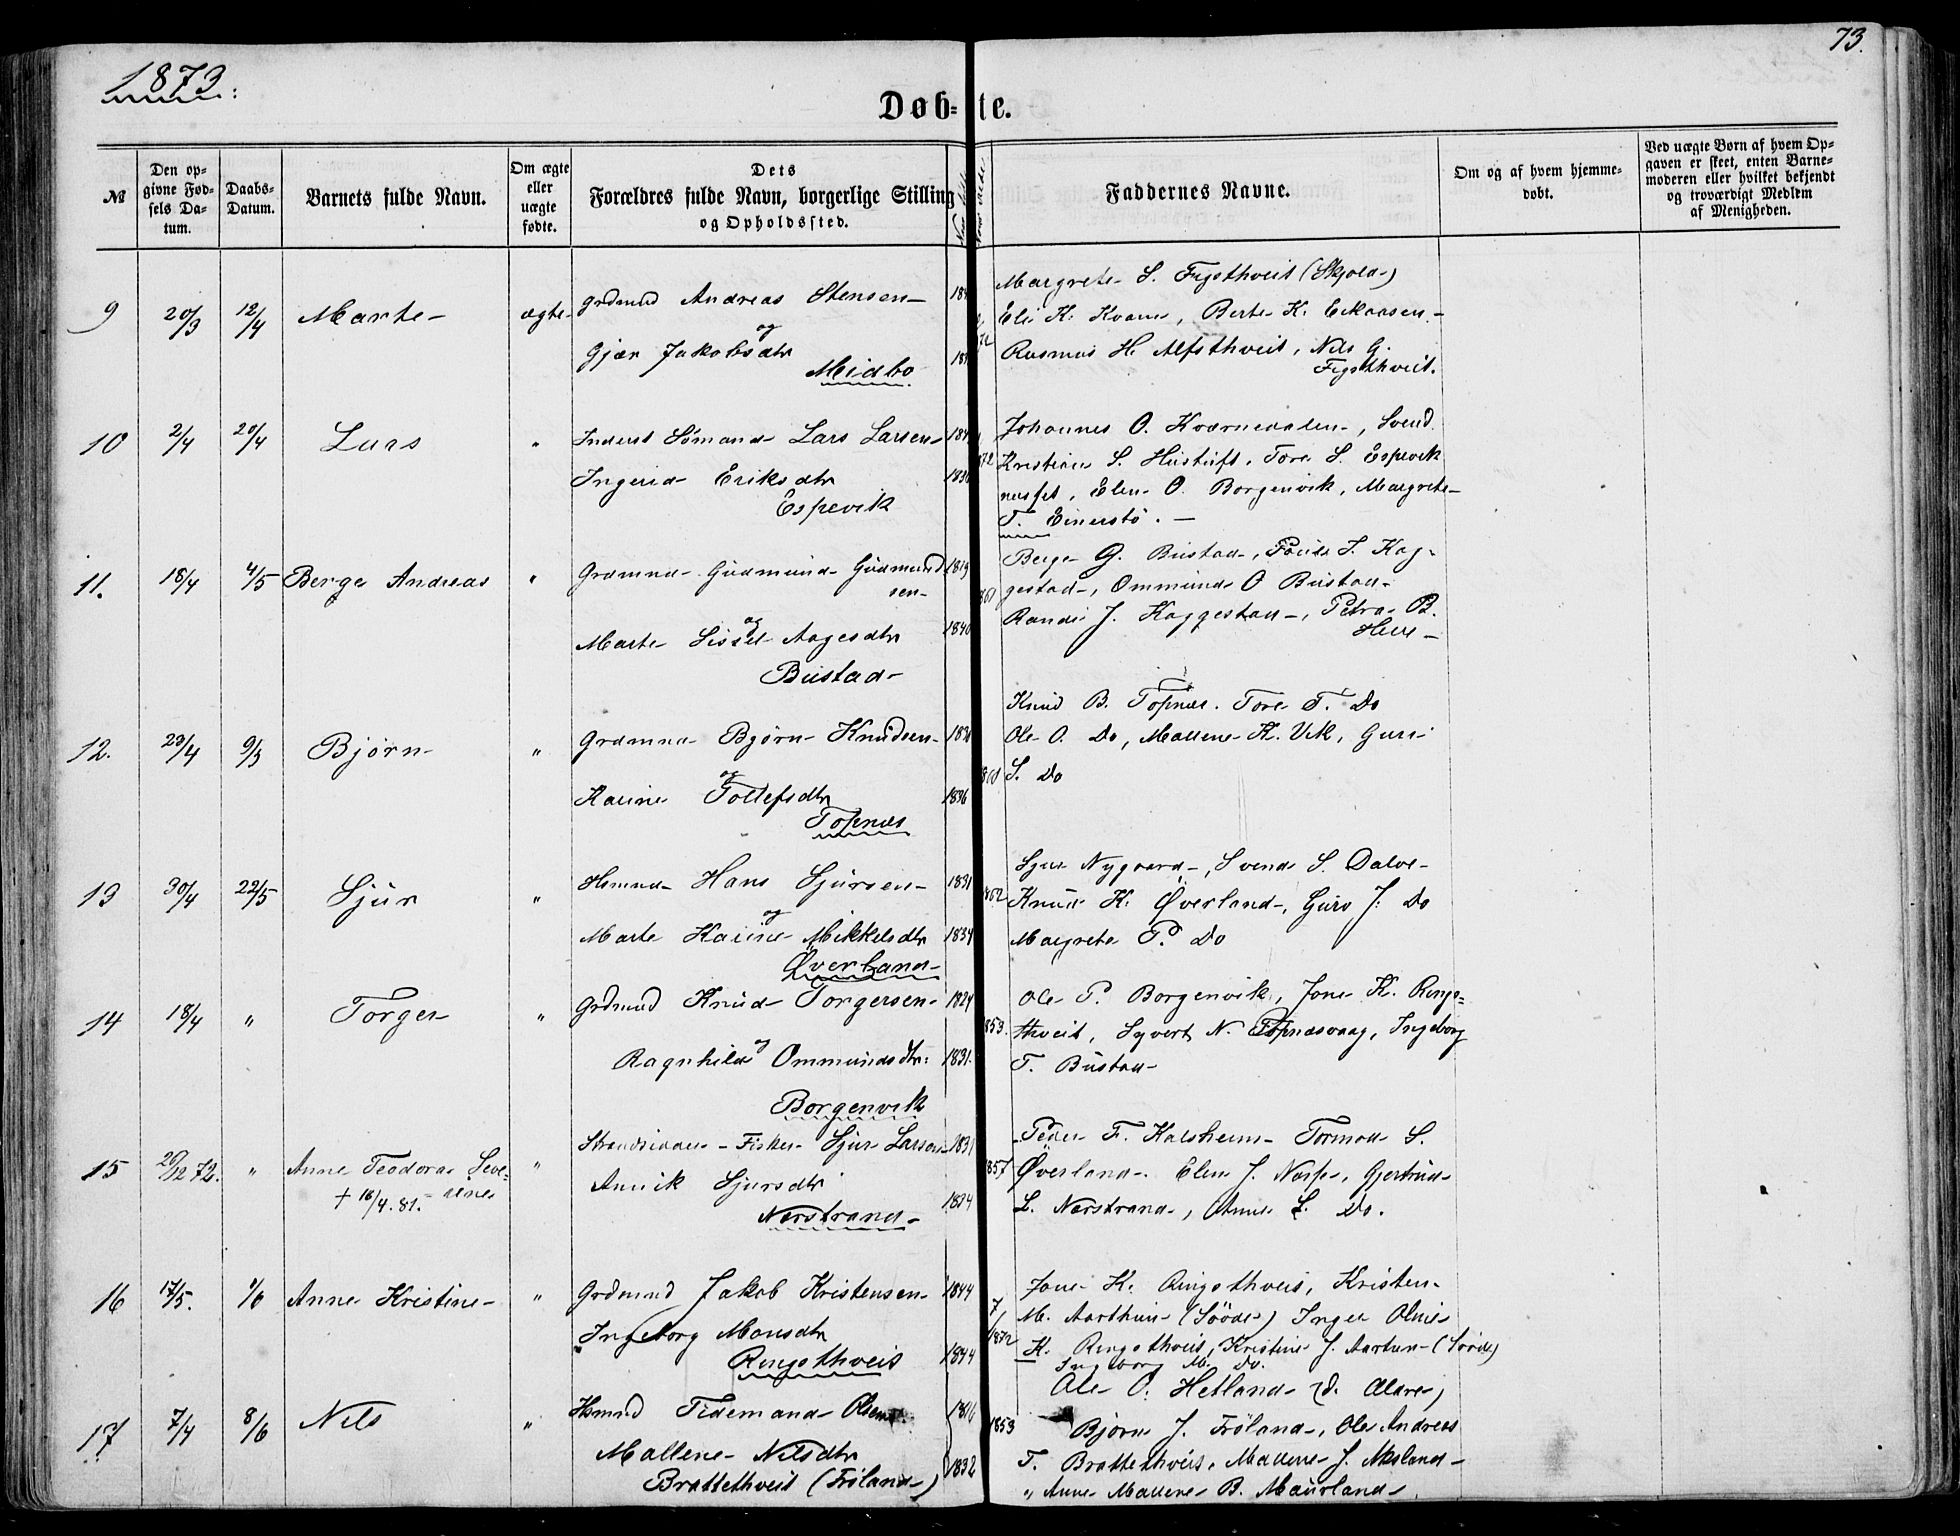 73.
1873.
Døb- te.
№
Den opgivne Fødsels Datum.
Daabs-Datum.
Barnets fulde Navn.
Om ægte eller uægte fødte.
Dets Forældres fulde Navn, borgerlige Stilling og Opholdssted.
Faddernes Navne.
Om og af hvem hjemmedøbt.
Ved uægte Børn af hvem Opgaven er skeet, enten Barnemoderen eller hvilket bekjendt og troværdigt Medlem af Menigheden.
9 20/3 12/4 Marte ægte
Grdmnd Andreas Stensen
og
Gjør Jakobsdtr
Meidbo
Margrete S. Figsthveit (Skjold)
Eli K. Kvame, Berte K. Eikaasen
Rasmus H. Alfsthveit, Nils G.
Figsthveit.
10 2/4 20/4 Lars "
Inderst Sømand Lars Larsen
Ingerid Eriksdtr 1830
Espevik
Johannes O. Kværnedalen, Svend
Kristian S. Hustuft, Tore S. Espevik
næset, Elen O. Borgenvik, Margrete
T. Einerstø.
11. 18/4 4/5 Berge Andreas "
Grdmnd Gudmund Gudmund 1819
sen
og
Marte Sissel Aagesdtr 1840
Bustad
Berge G. Bustad, S. Kag-
gestad, Ommund O Bustad
Randi J. Kaggestad, Petra B.
12. 23/4 9/3 Bjørn "
Grdmnd Bjørn Knudsen
og
Karine Tollefsdtr 1836
Topnæs
Knud B. Topnæs. Tore T. Do
Ole O. Do, Mallene K. Vik, Guri
S. Do
13 30/4 22/5 Sjur "
Hsmnd Hans Sjursen 1831
og
Marte Karine Mikkelsdtr 1834
Øverland
Sjur Nygaard, Svend S. Dalve
Knud K. Øverland, Guro J. Do
Margrete P. Do
14 18/4 " Torger "
Grdmnd Knud Torgersen 1824
og
Ragnhild Ommundsdtr: 1831.
Borgenvik
1853.
Ole P. Borgenvik, Jone K. Rings-
thveit, Syvert N. Topnæsvaag, Ingeborg
T. Bustad
15 20/12 72. " Anne Teodora Seve-
rine
+ 16/4. 81.
"
Strandsidder Fisker Sjur Larsen 1831
Annik Sjursdtr 1824
Nærstrand
1857
Peder F. Kalsheim Tormod S.
Øverland. Elen J. Næss, Gjertrud
L. Nærstrand, Anne L. Do.
16 17/5. 1/6 Anne Kristine "
Grdmnd Jakob Kristensen 1844
Ingeborg Monsdtr
Ringsthveit 1844
7/1872
Jone K. Ringsthveit, Kristen
M. Aarthun (Søvde) Inger Oline
K. Ringsthveit, Kristine J. Aartun (Søvde)
Ingeborg M. Do.
17 7/4 8/6 Nils "
Hsmnd Tidemand Olsen 1816
Mallene Nilsdtr
Brattethveit (Frøland) 1832
1853
Ole O. Hetland
Bjørn J. Frøland, Ole Andreas
T. Brattethveit, Mallene J. Aksland
" Anne Mallene B. Maurland